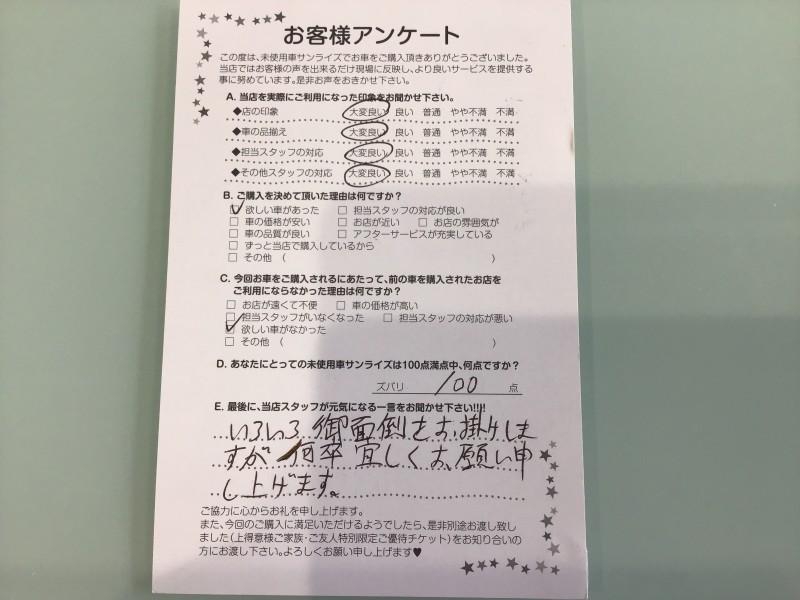 お客様アンケート
この度は、未使用車サンライズでお車をご購入頂きありがとうございました。
当店ではお客様の声を出来るだけ現場に反映し、より良いサービスを提供する
事に努めています。是非お声をおきかせ下さい。
A. 当店を実際にご利用になった印象をお聞かせ下さい。
◆店の印象 大変良い 良い 普通 やや不満 不満
◆車の品揃え 大変良い 良い 普通 やや不満 不満
◆担当スタッフの対応 大変良い 良い 普通 やや不満 不満
◆その他スタッフの対応 大変良い 良い 普通 やや不満 不満
B. ご購入を決めて頂いた理由は何ですか？
☑ 欲しい車があった □ 担当スタッフの対応が良い
□ 車の価格が安い □ お店が近い □ お店の雰囲気が
□ 車の品質が良い □ アフターサービスが充実している
□ ずっと当店で購入しているから
□ その他（ ）
C. 今回お車をご購入されるにあたって、前の車を購入されたお店を
ご利用にならなかった理由は何ですか？
□ お店が遠くて不便 □ 車の価格が高い
□ 担当スタッフがいなくなった □ 担当スタッフの対応が悪い
☑ 欲しい車がなかった
□ その他（ ）
D. あなたにとっての未使用車サンライズは100点満点中、何点ですか？
ズバリ 100 点
E. 最後に、当店スタッフが元気になる一言をお聞かせ下さい!!!!
いろいろ御面倒をお掛けしま
すが何卒宜しくお願い申
し上げます。
ご協力に心からお礼を申し上げます。
また、今回のご購入に満足いただけるようでしたら、是非別途お渡し致し
ました（上得意様ご家族・ご友人特別限定ご優待チケット）をお知り合いの
方にお渡し下さい。よろしくお願い申し上げます♥